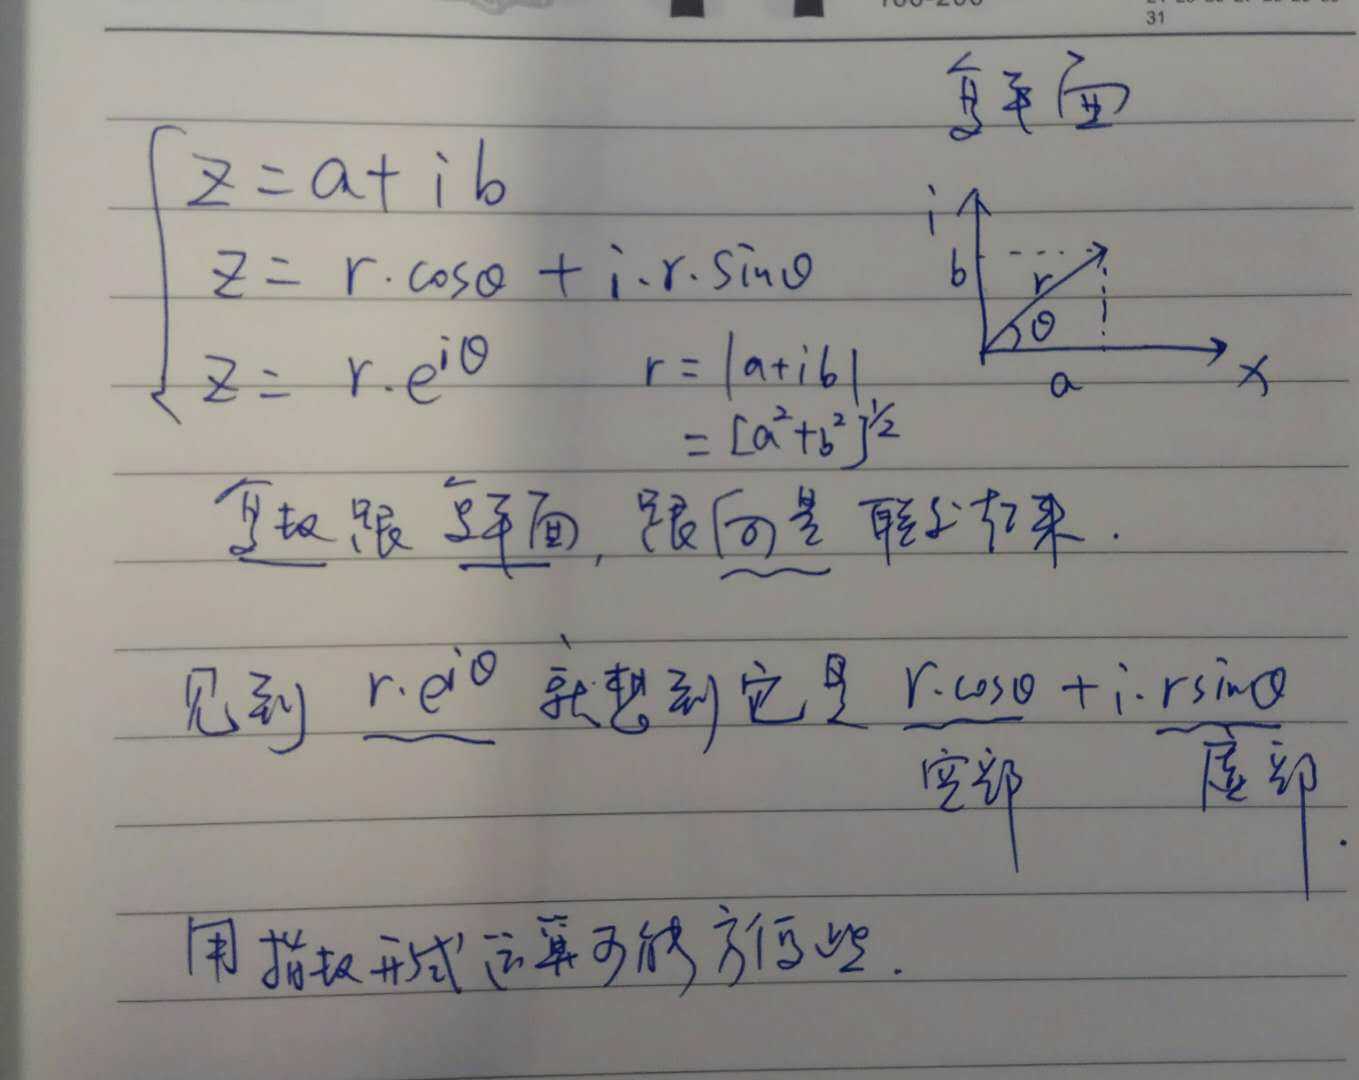 31
复平面
z = a + ib
z = r·cosθ + i·r·sinθ
z = r·e^{iθ}
r = |a+ib|
= [a²+b²]^{1/2}
i
b
r
θ
a
x
复数跟复平面, 跟向量联系起来.
见到 r·e^{iθ} 就想到它是 r·cosθ + i·rsinθ
实部 虚部.
用指数形式运算可能方便些.